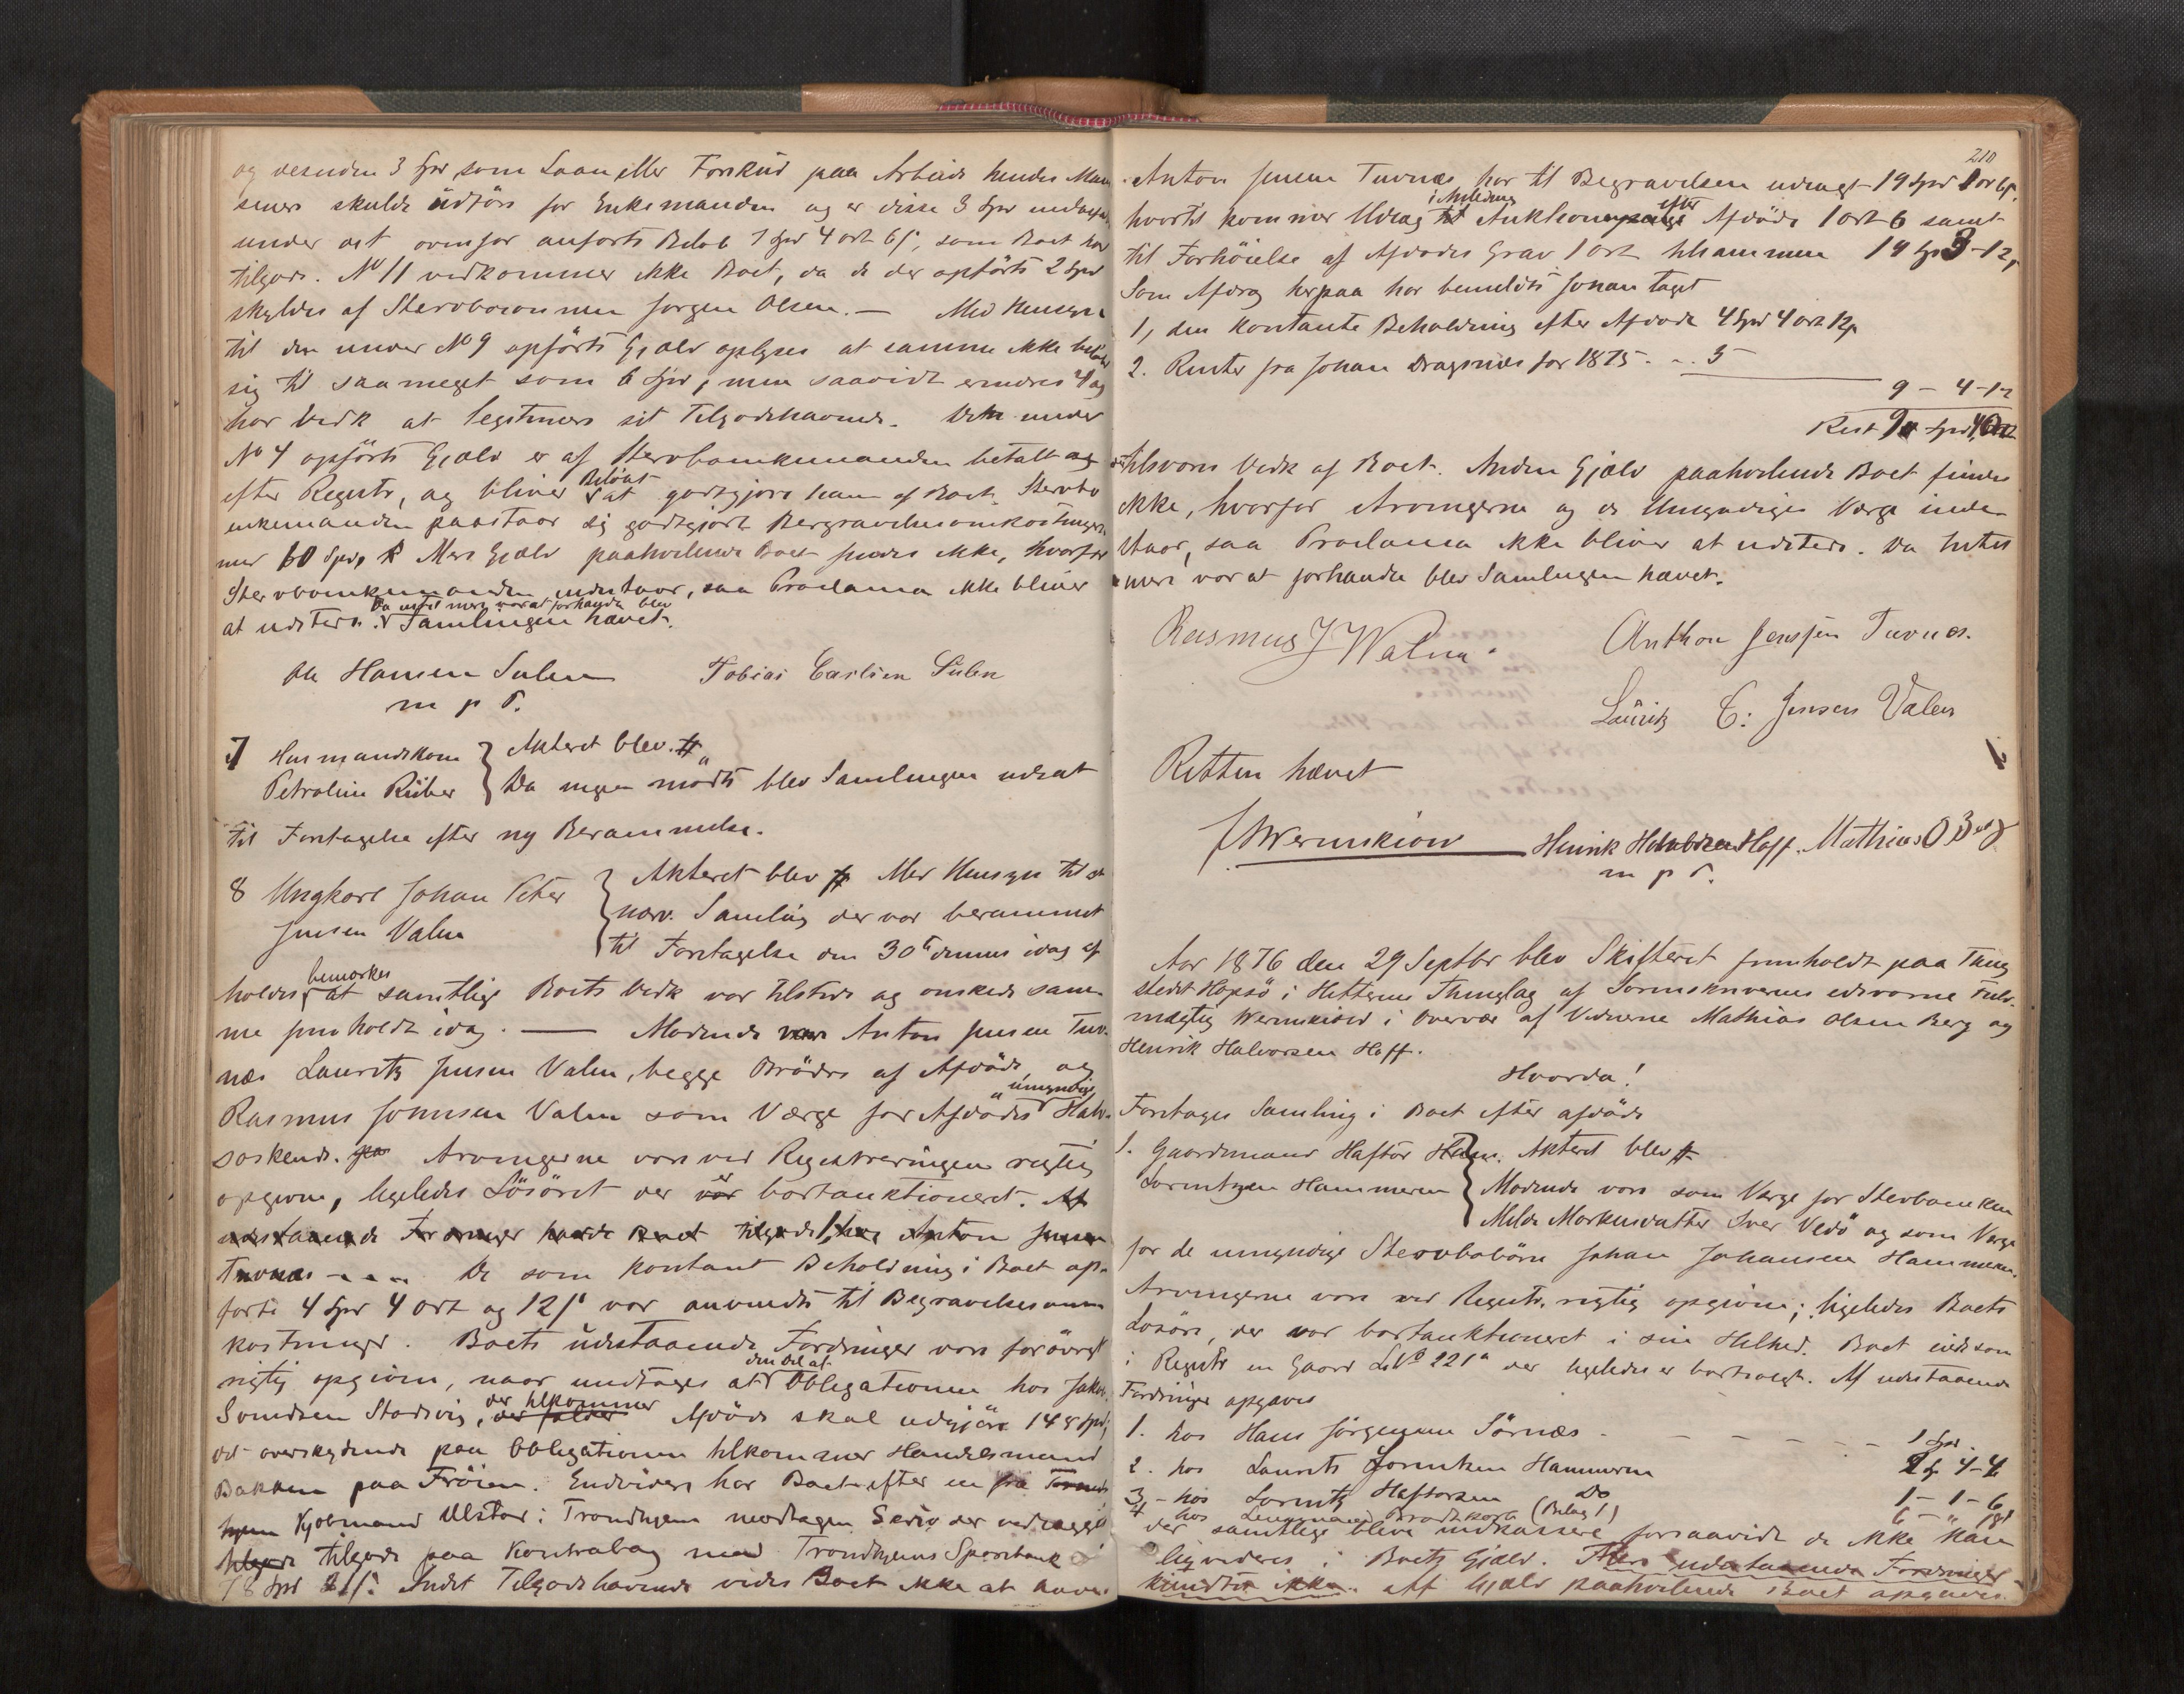 og desuden 3 Spd som Laan eller Forskud paa Arbeide hendes Mand
senere skulde udføre for Enkemanden og er disse 3 Spd
under det ovenfor anførte Beløb 7 Spd 4 ort 6 s, som Boet har
tilgode. No 11 vedkommer ikke Boet, da de der opførte 2 Spd
skyldes af Stervbosønnen Jørgen Olsen. — Med Hensyn
til den under No 9 opførte Gjæld oplyses at samme ikke beløber
sig til saa meget som 6 Spd, men saavidt erindres 4 og
har Vedk at legitimere sit Tilgodehavende. Den under
No 4 opførte Gjæld er af Stervboenkemanden betalt
efter Registr, og bliver Beløbet at godtgjøre ham af Boet. Stervbo
enkemanden paastaar sig godtgjort Begravelsesomkostninger
med 10 Spd. Mere Gjæld paahvilende Boet findes ikke, hvorfor
Stervboenkemanden indestaar, saa Proclama ikke bliver
at udstede. Da intet mere var at forhandle blev Samlingen hævet.
Ole Hansen Sulen Tobias Carlsen Sulen
m p P.
7 Husmandskone } Akteret blev #
Petroline Riiber } Da ingen mødte blev Samlingen udsat
til Foretagelse efter ny Berammelse.
8 Ungkarl Johan Peter } Akteret blev # Med Hensyn til at
Jensen Valen } nærv. Samling der var berammet
til Foretagelse den 30te dennes idag af
holdes bemærkes at samtlige Boets Vedk var tilstede og ønskede sam-
me fremholdt idag. — Mødende var Anton Jensen Tuv-
næs Lauritz Jensen Valen, begge Brødre af Afdøde og
Rasmus Johnsen Valen som Værge for Afdødes umyndige Halv-
søskende. Arvingerne vare ved Registreringen rigtig
opgivne, ligeledes Løsøret der er bortauktioneret. Af
udestaaende Fordringer havde Boet tilgode 1, hos Anton Jensen
Tuvnæs - - - De som kontant Beholdning i Boet op-
førte 4 Spd 4 ort og 12 s var anvendt til Begravelsesom
kostninger. Boets udestaaende Fordringer vare forøvrigt
rigtig opgivne, naar undtages at den Del af Obligationen hos Jakob
Sivertsen Stadsvig, der tilkommer Afdøde skal udgjøre 148 Spd,
det overskydende paa Obligationen tilkommer Handelsmand
Bakken paa Frøien. Endvidere har Boet efter en fra
Kjøbmand Ulstad i Trondhjem modtagen Skriv der vedlægges
tilgode paa Kontrabog med Trondhjems Sparebank
78 Spd 21 s. Andet Tilgodehavende vides Boet ikke at have.
210
Anton Jensen Tuvnæs har til Begravelsen udlagt 19 Spd 1 ort 6 s.
hvortil kommer Udlæg i Anledning Auktionen efter Afdøde 1 ort 6 samt
til Forhøielse af Afdødes Grav 1 ort tilsammen 19 Spd 3 - 12,
Som Afdrag herpaa har bemeldte Jensen taget
1, den kontante Beholdning efter Afdøde 4 Spd 4 ort 12 s
2. Renter fra Johan Dragsnæs for 1875 - .. 5
9 - 4 - 12
Rest 9 Spd 4 Ort
tilsvares Vedk af Boet. Anden Gjæld paahvilende Boet findes
ikke, hvorfor Arvingerne og de Umyndiges Værge inde-
staar, saa Proclama ikke bliver at udstede. Da intet
mere var at forhandle blev Samlingen hævet.
Rasmus J Walen. Anthon Jenssen Tuvnes.
Lauritz C: Jensen Valen
Retten hævet
Wermskiow Henrik Halvorsen Hoff. Mathias O Berg
m p P.
Aar 1876 den 29 Septbr blev Skifteret fremholdt paa Thing
stedet Hopsø i Hitterens Thinglag af Sorenskriverens edsvorne Fuld-
mægtig Wermskiow i Overvær af Vidnerne Mathias Olsen Berg og
Henrik Halvorsen Hoff.
Hvorda!
Foretages Samling i Boet efter afdøde
1. Gaardmand Haftor } Akteret blev #
Lorentzen Hammeren } Mødende vare som Værge for Stervboenken
Milda Markusdatter Iver Vedø og som Værge
for de umyndige Stervbobørn Johan Johansen Hammeren.
Arvingerne vare ved Registr. rigtig opgivne; ligeledes Boets
Løsøre, der var bortauktioneret i sin Helhed. Boet eiede som
i Registr en Gaard L No 221a der ligeledes er bortsolgt. Af udestaaende
Fordringer opgaves
1. hos Hans Jørgensen Sørnæs - - - - - 1 Spd
2. hos Laurits Lorentzen Hammeren 2 4 - 4
3 - hos Lorentz Haftorsen Do 1 - 1 - 6
4 hos Lensmand Brodtkorb (Bilag 1) 6 - " 18
der samtlige bleve indkassere forsaavidt de ikke kan
ligvideres i Boets Gjæld. Flere udestaaende Fordringer
kjendtes ikke. Af Gjæld paahvilende Boet opgaves.